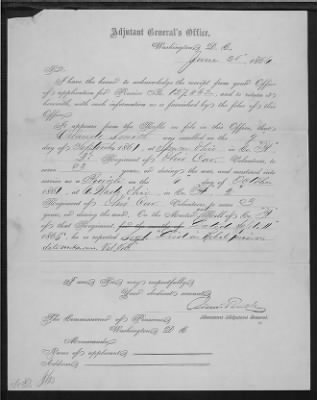 Adjutant General's Office,
Washington, D. C.
June 25" 1866
Sir:
I have the honor to acknowledge the receipt from your Office
of application for Pension No. and to return it
herewith, with such information as is furnished by the files of this
Office.
It appears from the Rolls on file in this Office, that
was enrolled on the
day of September 1861, at Ohio, in Co.
2" Regiment of Ohio Cav. Volunteers, to
serve years, or during the war, and mustered into
service as a on the day of October
1861, at Ohio, in Co. 2"
Regiment of Ohio Cav. Volunteers, to serve 3
years, or during the war. On the Muster Roll of Co.
of that Regiment, for the months of dated Sept. 11"
1865, he is reported Died in Rebel prison
date unknown.
I am, Sir, very respectfully,
Your obedient servant,
Assistant Adjutant General.
The Commissioner of Pensions,
Washington, D. C.
Memoranda:
Name of applicant,
Address,